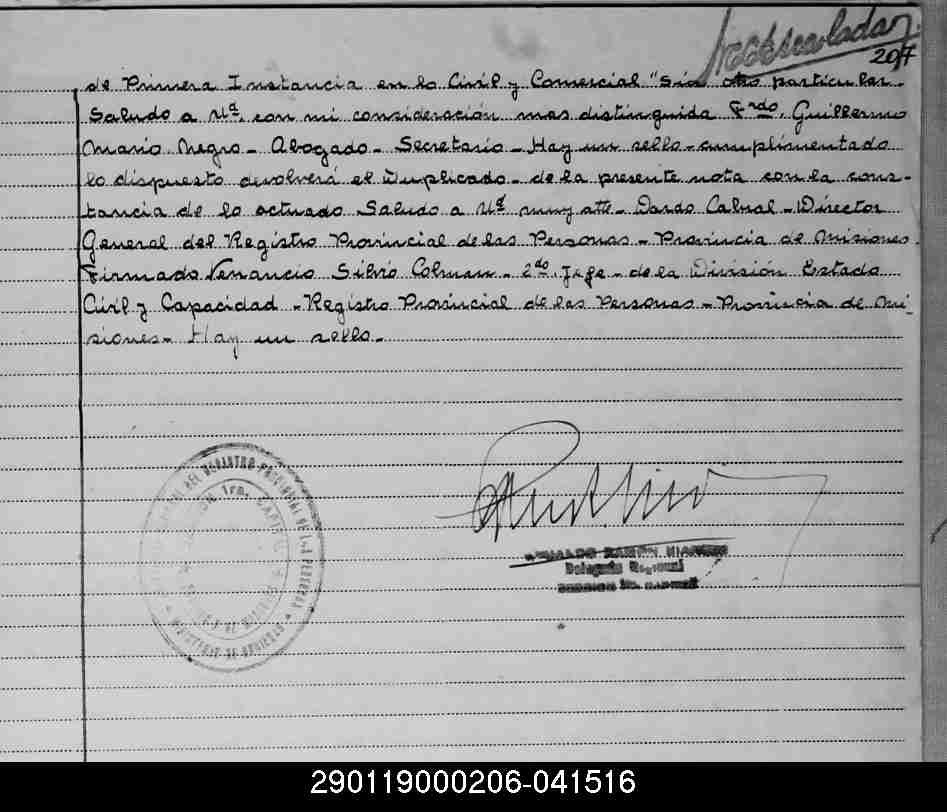 207
de Primera Instancia en lo Civil y Comercial "Sin otro particular
Saludo a Ud. con mi consideración mas distinguida Frdo. Guillermo
Mario Negro - Abogado - Secretario - Hay un sello - cumplimentado
lo dispuesto devolverá el Duplicado - de la presente nota con la cons-
tancia de lo actuado Saludo a Ud muy atte - Dardo Cabral - Director
General del Registro Provincial de las Personas - Provincia de Misiones.
Firmado Venancio Silvio Colman - 2do. Jefe - de la División Estado
Civil y Capacidad - Registro Provincial de las Personas - Provincia de Mi-
siones - Hay un sello -
DEL REGISTRO PROVINCIAL DE LAS PERSONAS
1ra. CAPITAL
RAMÓN
Delegado Regional
290119000206-041516